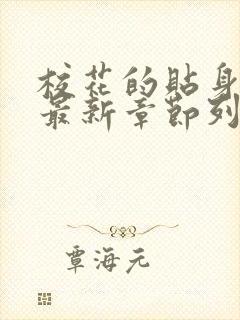 校花的贴身
最新章节列
覃海元